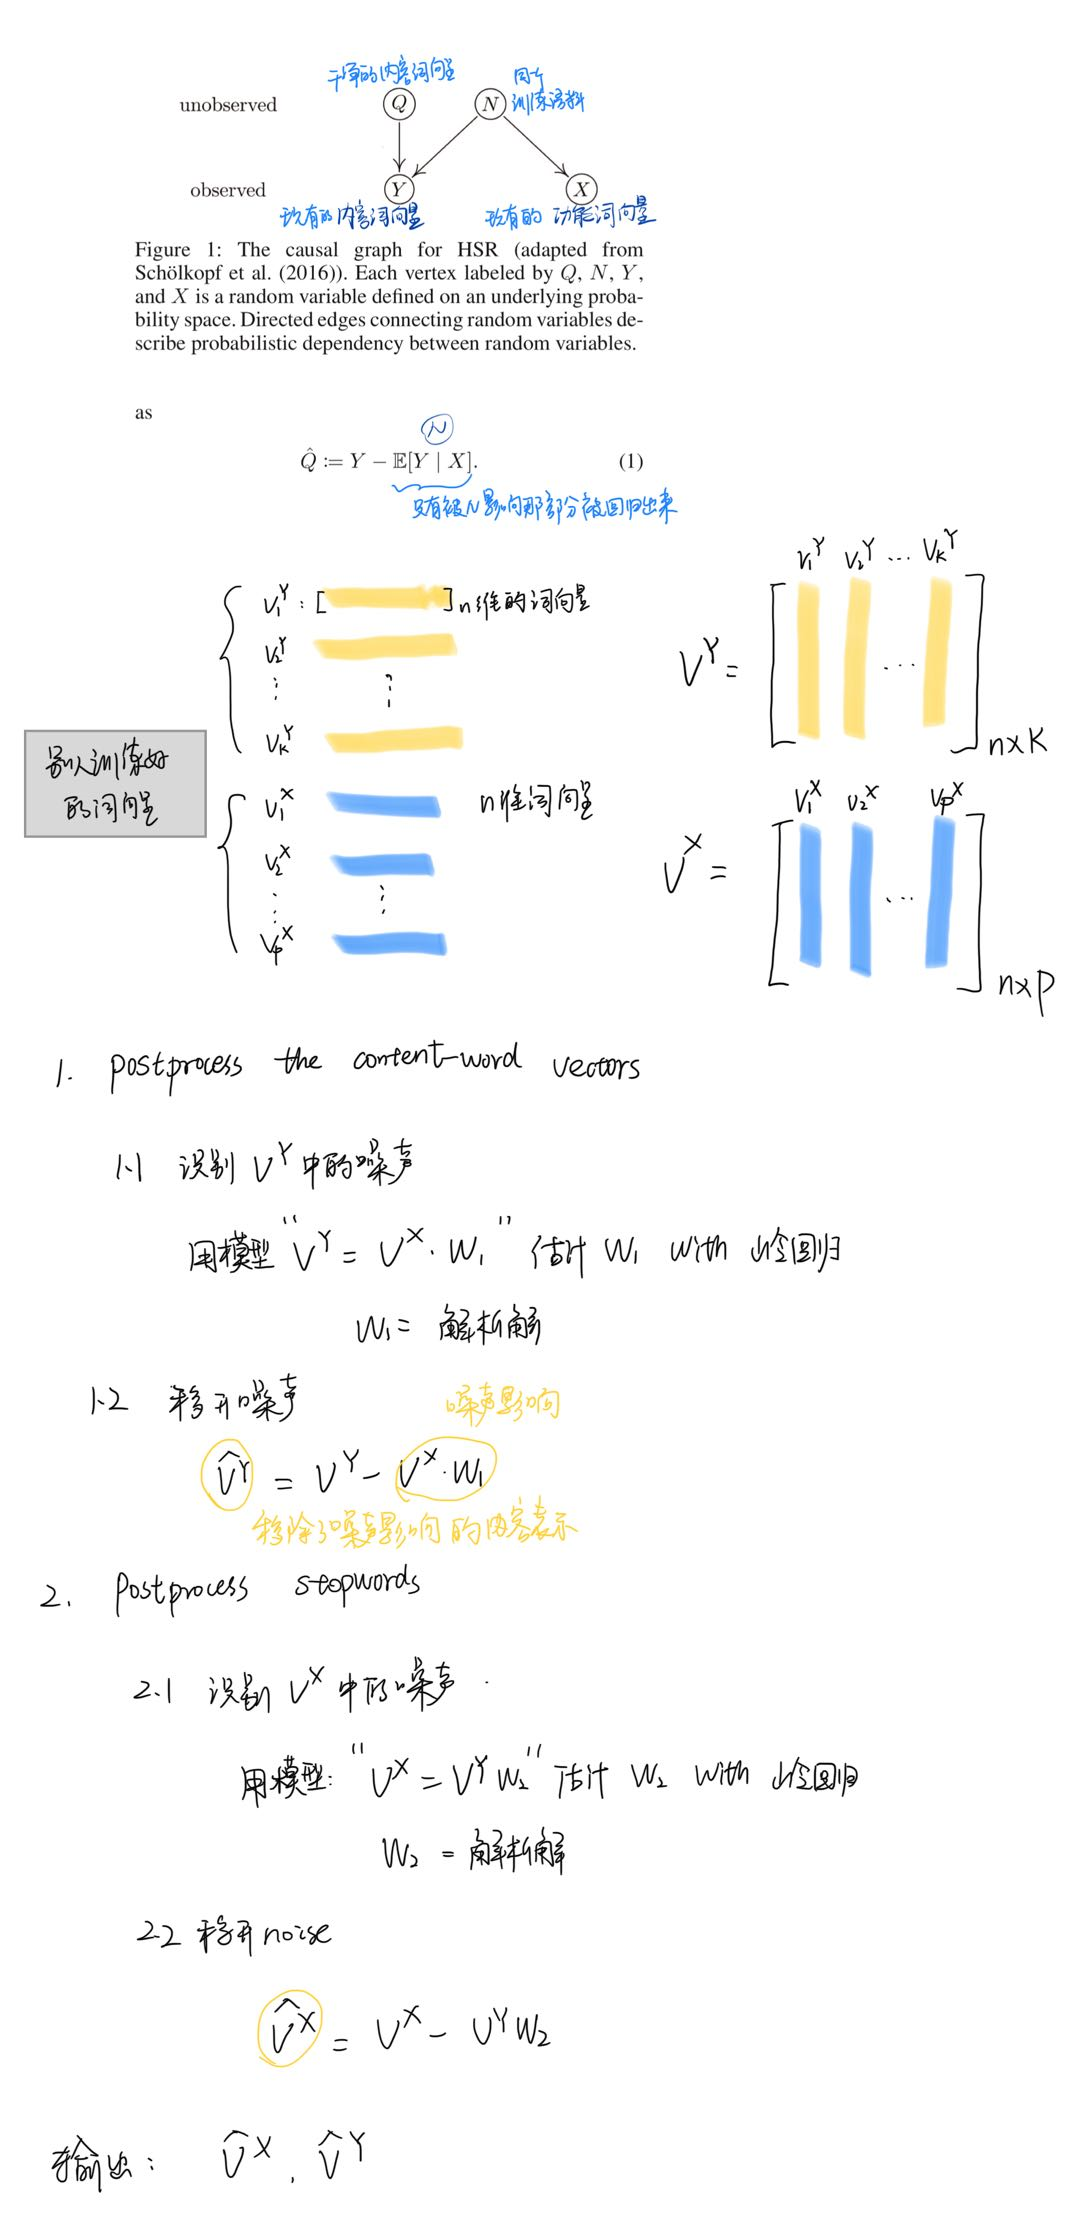 干净的内容词向量
同个
训练语料
unobserved Q N
observed Y X
现有的内容词向量 现有的 功能词向量
Figure 1: The causal graph for HSR (adapted from
Schölkopf et al. (2016)). Each vertex labeled by Q, N, Y,
and X is a random variable defined on an underlying proba-
bility space. Directed edges connecting random variables de-
scribe probabilistic dependency between random variables.
as
N
Q̂ := Y − 𝔼[Y | X]. (1)
只有被N影响那部分被回归出来
V₁^Y : [ ] n维的词向量
V₂^Y
⋮ ⋮
V_K^Y
别人训练好
的词向量
V₁^X n维词向量
V₂^X
⋮ ⋮
V_p^X
V₁^Y V₂^Y ... V_K^Y
V^Y = [ ... ] n×K
V₁^X V₂^X V_p^X
V^X = [ ... ] n×p
1. postprocess the content-word vectors
1.1 识别 V^Y 中的噪声
用模型 "V^Y = V^X · W₁" 估计 W₁ with 岭回归
W₁ = 解析解
1.2 移开噪声
噪声影响
V̂^Y = V^Y − V^X · W₁
移除了噪声影响的内容表示
2. Postprocess stopwords
2.1 识别 V^X 中的噪声.
用模型: "V^X = V^Y W₂" 估计 W₂ with 岭回归
W₂ = 解析解
2.2 移开noise
V̂^X = V^X − V^Y W₂
输出: V̂^X, V̂^Y